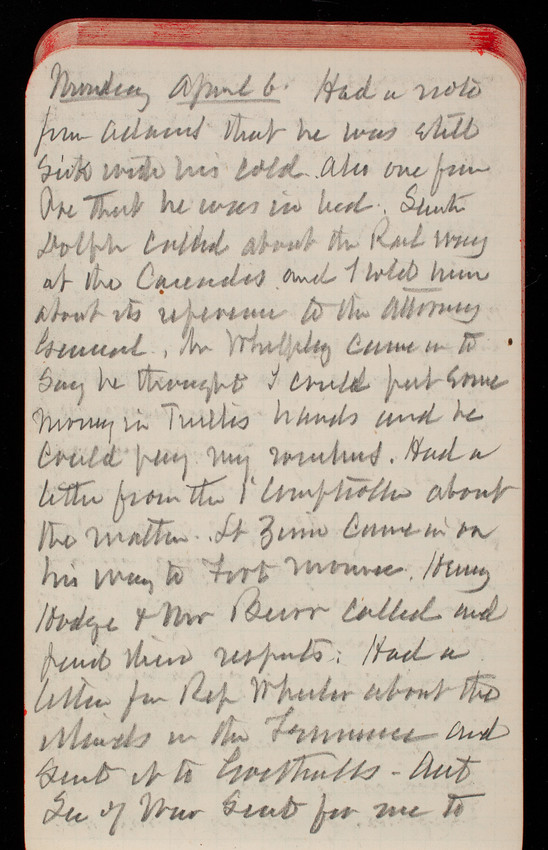 Monday April 6. Had a note
from Adams that he was still
sick with his cold. Also one from
that he was in bed. Senator
Dolph called about the Rail way
at the Cascades and I told him
about its reference to the Attorney
General. Mr Whelpley came in to
say he thought I could put some
money in hands and he
could pay my vouchers. Had a
letter from the 1' Comptroller about
the matter. Lt Zinn came in on
his way to Fort Monroe. Henry
Hodge & Mr Burr called and
paid their respects. Had a
letter from Rep Wheeler about the
islands in the and
sent it to - Act
Sec of War sent for me to